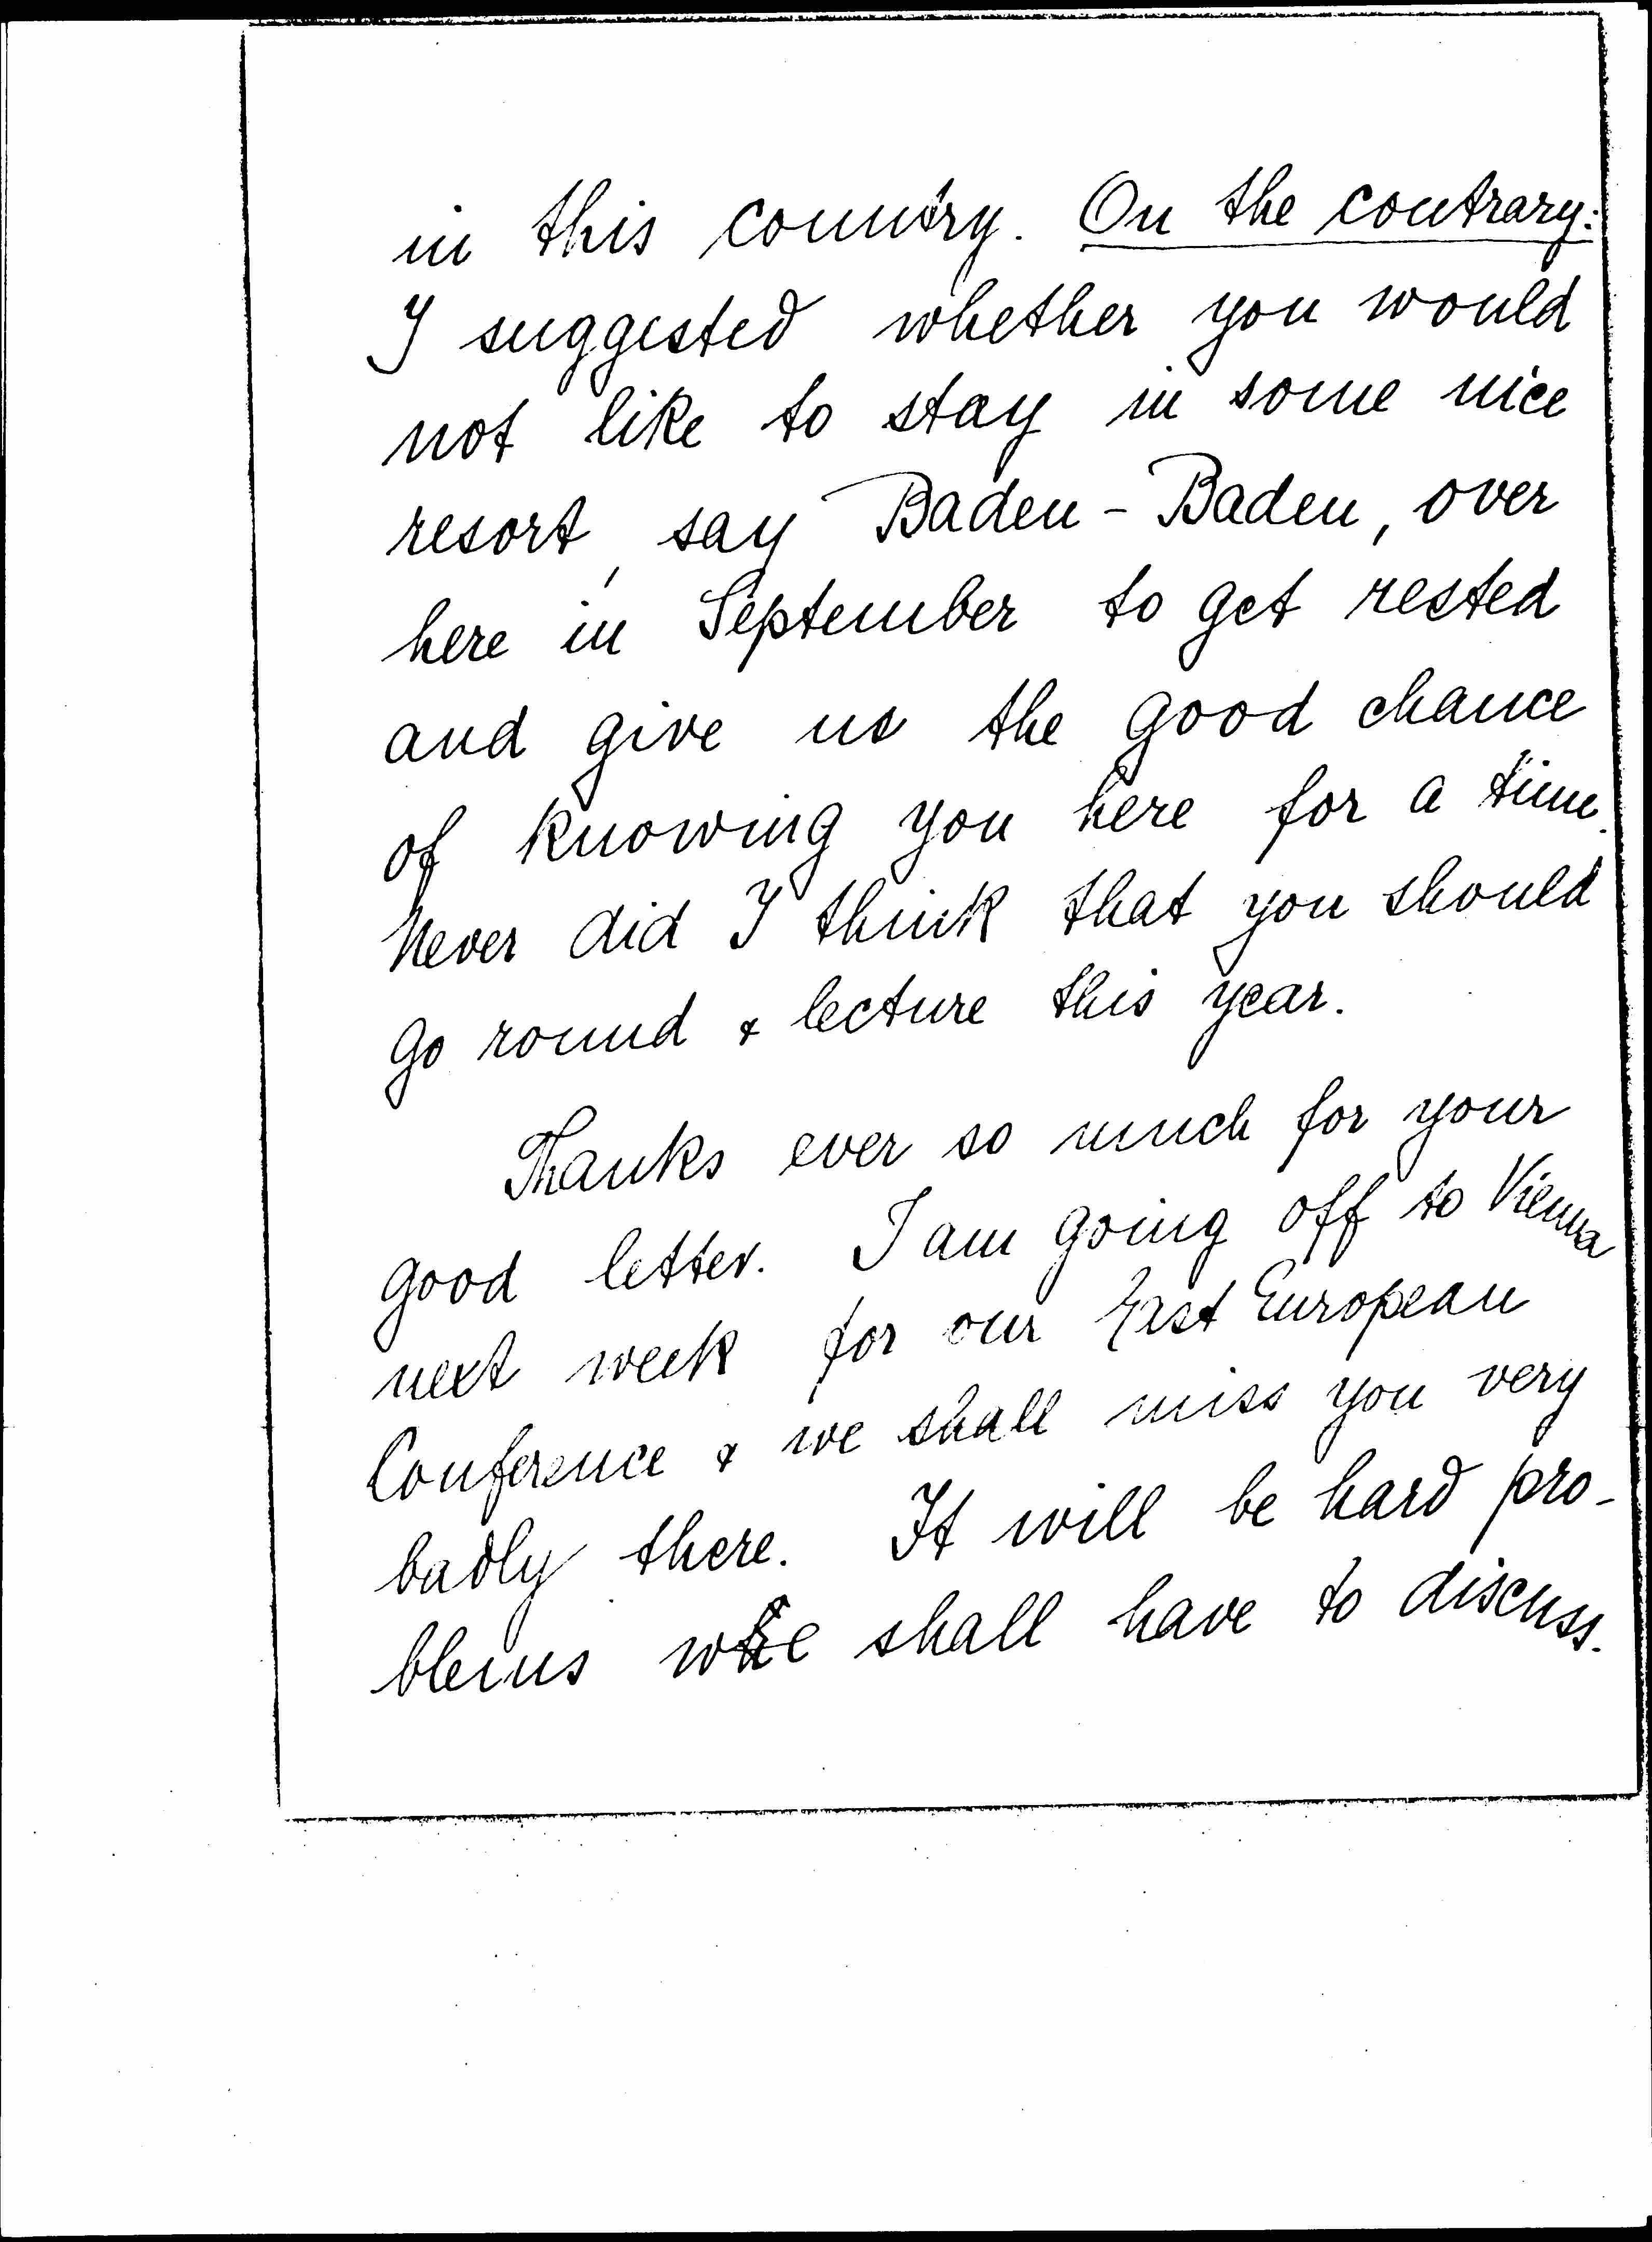 in this country. On the contrary:
I suggested whether you would
not like to stay in some nice
resort, say Baden-Baden, over
here in September to get rested
and give us the good chance
of knowing you here for a time.
Never did I think that you should
go round & lecture this year.
Thanks ever so much for your
good letter. I am going off to Vienna
next week for our East European
Conference & we shall miss you very
badly there. It will be hard pro-
blems we shall have to discuss.